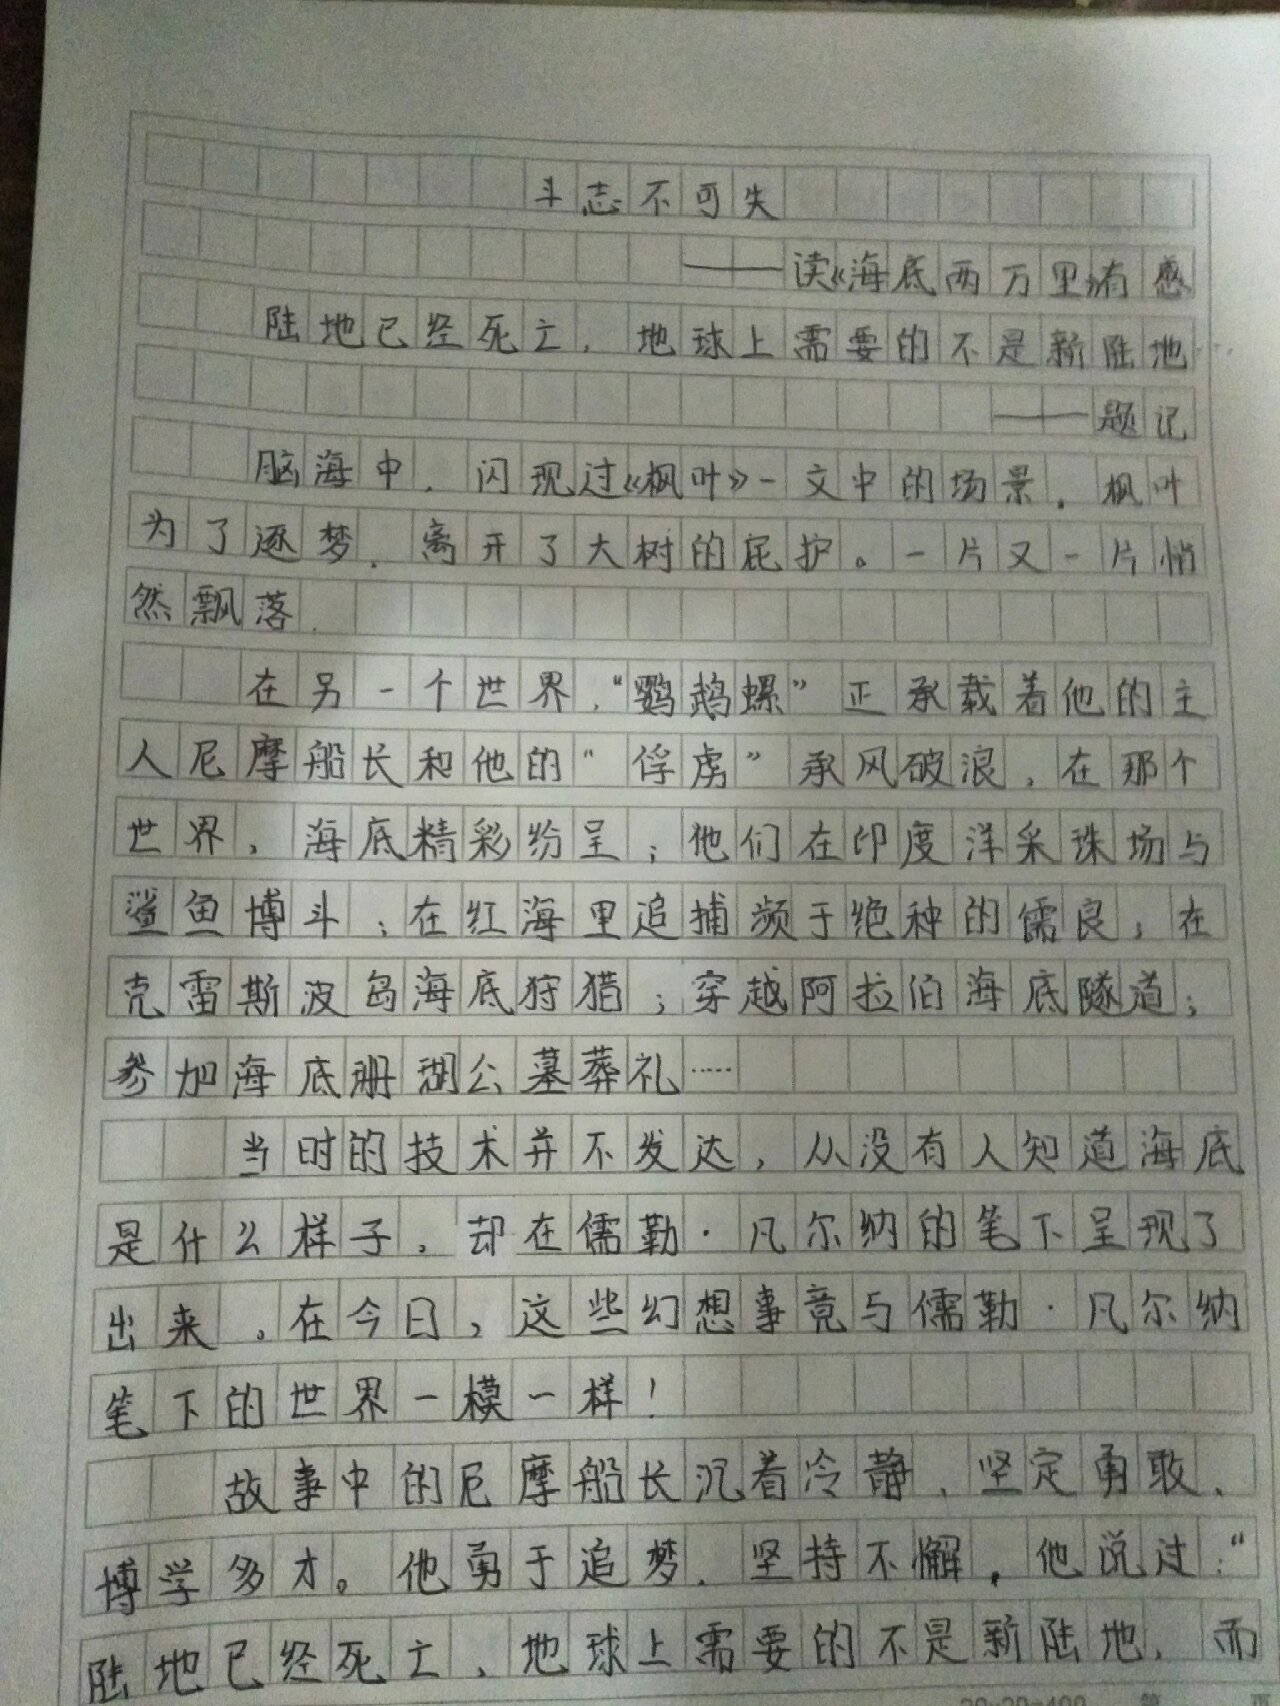 斗志不可失
——读《海底两万里》有感
陆地已经死亡，地球上需要的不是新陆地……
——题记
脑海中，闪现过《枫叶》一文中的场景，枫叶
为了逐梦，离开了大树的庇护。一片又一片悄
然飘落。
在另一个世界，“鹦鹉螺”正承载着他的主
人尼摩船长和他的“俘虏”承风破浪，在那个
世界，海底精彩纷呈；他们在印度洋采珠场与
鲨鱼博斗；在红海里追捕频于绝种的儒良；在
克雷斯波岛海底狩猎；穿越阿拉伯海底隧道；
参加海底珊瑚公墓葬礼……
当时的技术并不发达，从没有人知道海底
是什么样子，却在儒勒·凡尔纳的笔下呈现了
出来。在今日，这些幻想事竟与儒勒·凡尔纳
笔下的世界一模一样！
故事中的尼摩船长沉着冷静、坚定勇敢、
博学多才。他勇于追梦，坚持不懈，他说过：“
陆地已经死亡，地球上需要的不是新陆地，而